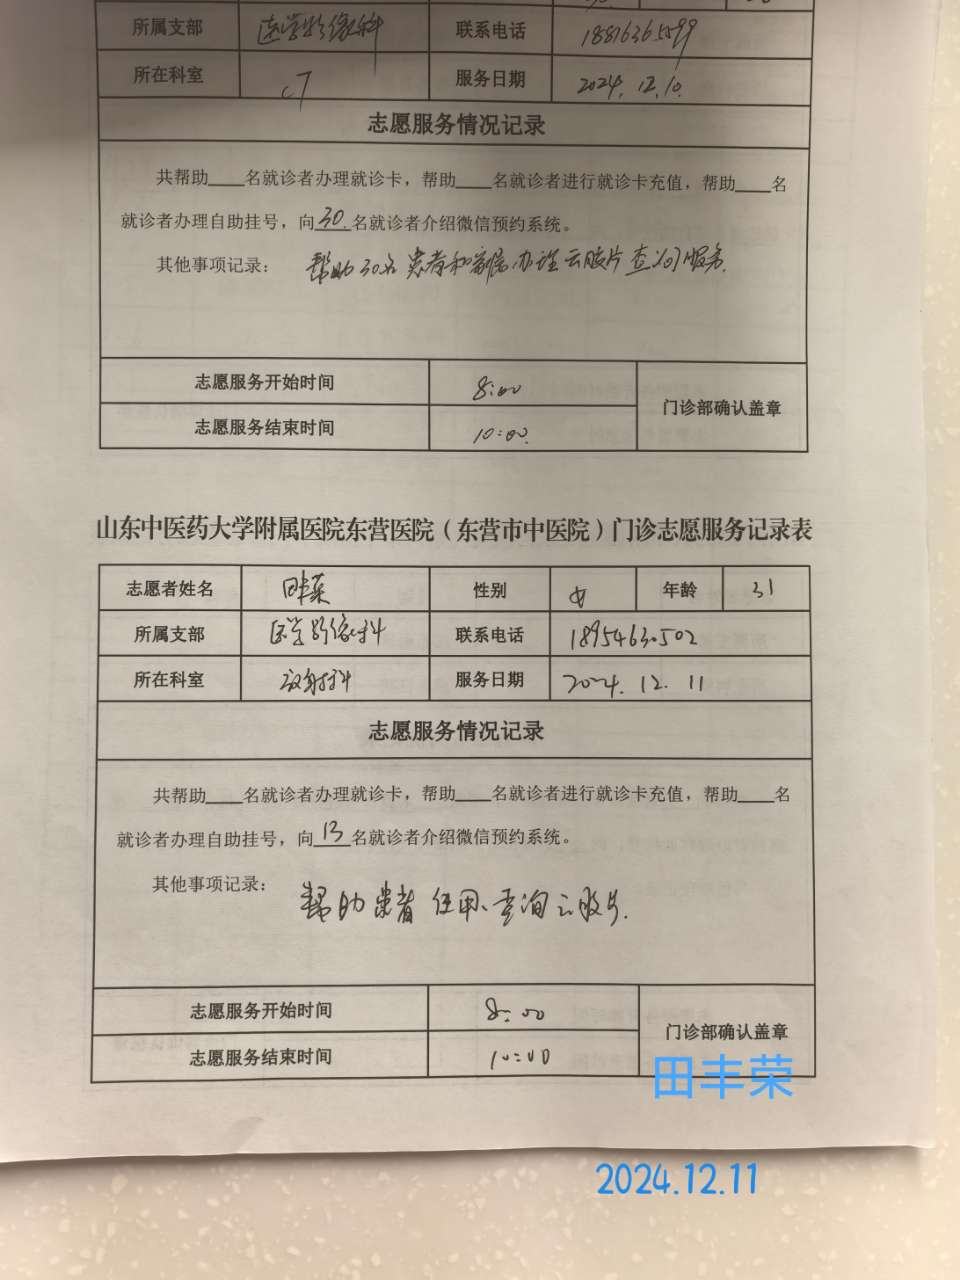 所属支部 医学影像科 联系电话 18816365599
所在科室 CT 服务日期 2024.12.10.
志愿服务情况记录
共帮助____名就诊者办理就诊卡，帮助____名就诊者进行就诊卡充值，帮助____名
就诊者办理自助挂号，向30.名就诊者介绍微信预约系统。
其他事项记录： 帮助30名患者和家属办理云胶片查询服务.
志愿服务开始时间 8:00
门诊部确认盖章
志愿服务结束时间 10:00.
山东中医药大学附属医院东营医院（东营市中医院）门诊志愿服务记录表
志愿者姓名 田丰荣 性别 女 年龄 31
所属支部 医学影像科 联系电话 18954630502
所在科室 放射科 服务日期 2024.12.11
志愿服务情况记录
共帮助____名就诊者办理就诊卡，帮助____名就诊者进行就诊卡充值，帮助____名
就诊者办理自助挂号，向13名就诊者介绍微信预约系统。
其他事项记录： 帮助患者使用、查询云胶片.
志愿服务开始时间 8:00
门诊部确认盖章
志愿服务结束时间 10:00
田丰荣
2024.12.11